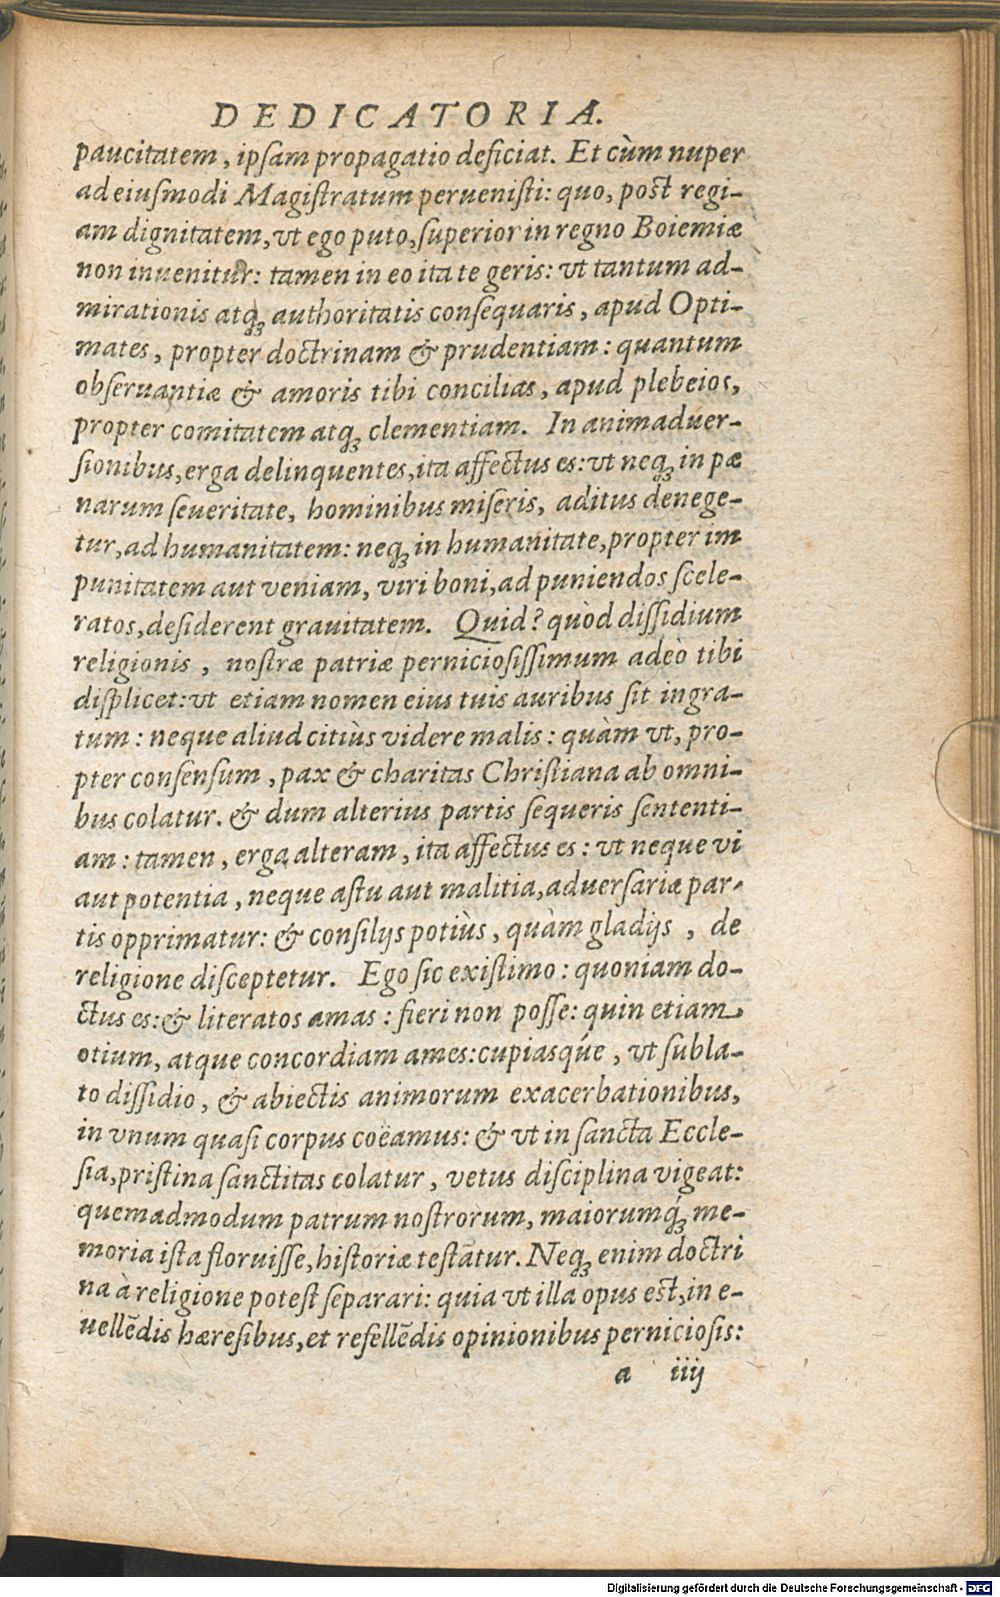 DEDICATORIA.
paucitatem, ipſam propagatio deficiat. Et cùm nuper
ad eiuſmodi Magiſtratum perueniſti: quo, poſt regi-
am dignitatem, vt ego puto, ſuperior in regno Boiemiæ
non inuenitur: tamen in eo ita te geris: vt tantum ad-
mirationis atq́ꝫ authoritatis conſequaris, apud Opti-
mates, propter doctrinam & prudentiam: quantum
obſeruantiæ & amoris tibi concilias, apud plebeios,
propter comitatem atqꝫ clementiam. In animaduer-
ſionibus, erga delinquentes, ita affectus es: vt neqꝫ in pæ
narum ſeueritate, hominibus miſeris, aditus denege-
tur, ad humanitatem: neqꝫ in humanitate, propter im
punitatem aut veniam, viri boni, ad puniendos ſcele-
ratos, deſiderent grauitatem. Quid? quòd diſſidium
religionis, noſtræ patriæ perniciosiſſimum adeò tibi
diſplicet: vt etiam nomen eius tuis auribus ſit ingra-
tum: neque aliud citiùs videre malis: quàm vt, pro-
pter conſenſum, pax & charitas Chriſtiana ab omni-
bus colatur. & dum alterius partis ſequeris ſententi-
am: tamen, erga alteram, ita affectus es: vt neque vi
aut potentia, neque aſtu aut malitia, aduerſariæ par-
tis opprimatur: & conſilijs potiùs, quàm gladijs, de
religione diſceptetur. Ego ſic exiſtimo: quoniam do-
ctus es: & literatos amas: fieri non poſſe: quin etiam
otium, atque concordiam ames: cupiasq́ue, vt ſubla-
to diſſidio, & abiectis animorum exacerbationibus,
in vnum quaſi corpus coëamus: & vt in ſancta Eccle-
ſia, priſtina ſanctitas colatur, vetus diſciplina vigeat:
quemadmodum patrum noſtrorum, maiorumq́ꝫ me-
moria iſta floruiſſe, hiſtoriæ teſtãtur. Neqꝫ enim doctri
na à religione poteſt ſeparari: quia vt illa opus eſt, in e-
uellẽdis hæreſibus, et refellẽdis opinionibus pernicioſis:
a iiij
Digitalisierung gefördert durch die Deutsche Forschungsgemeinschaft - DFG